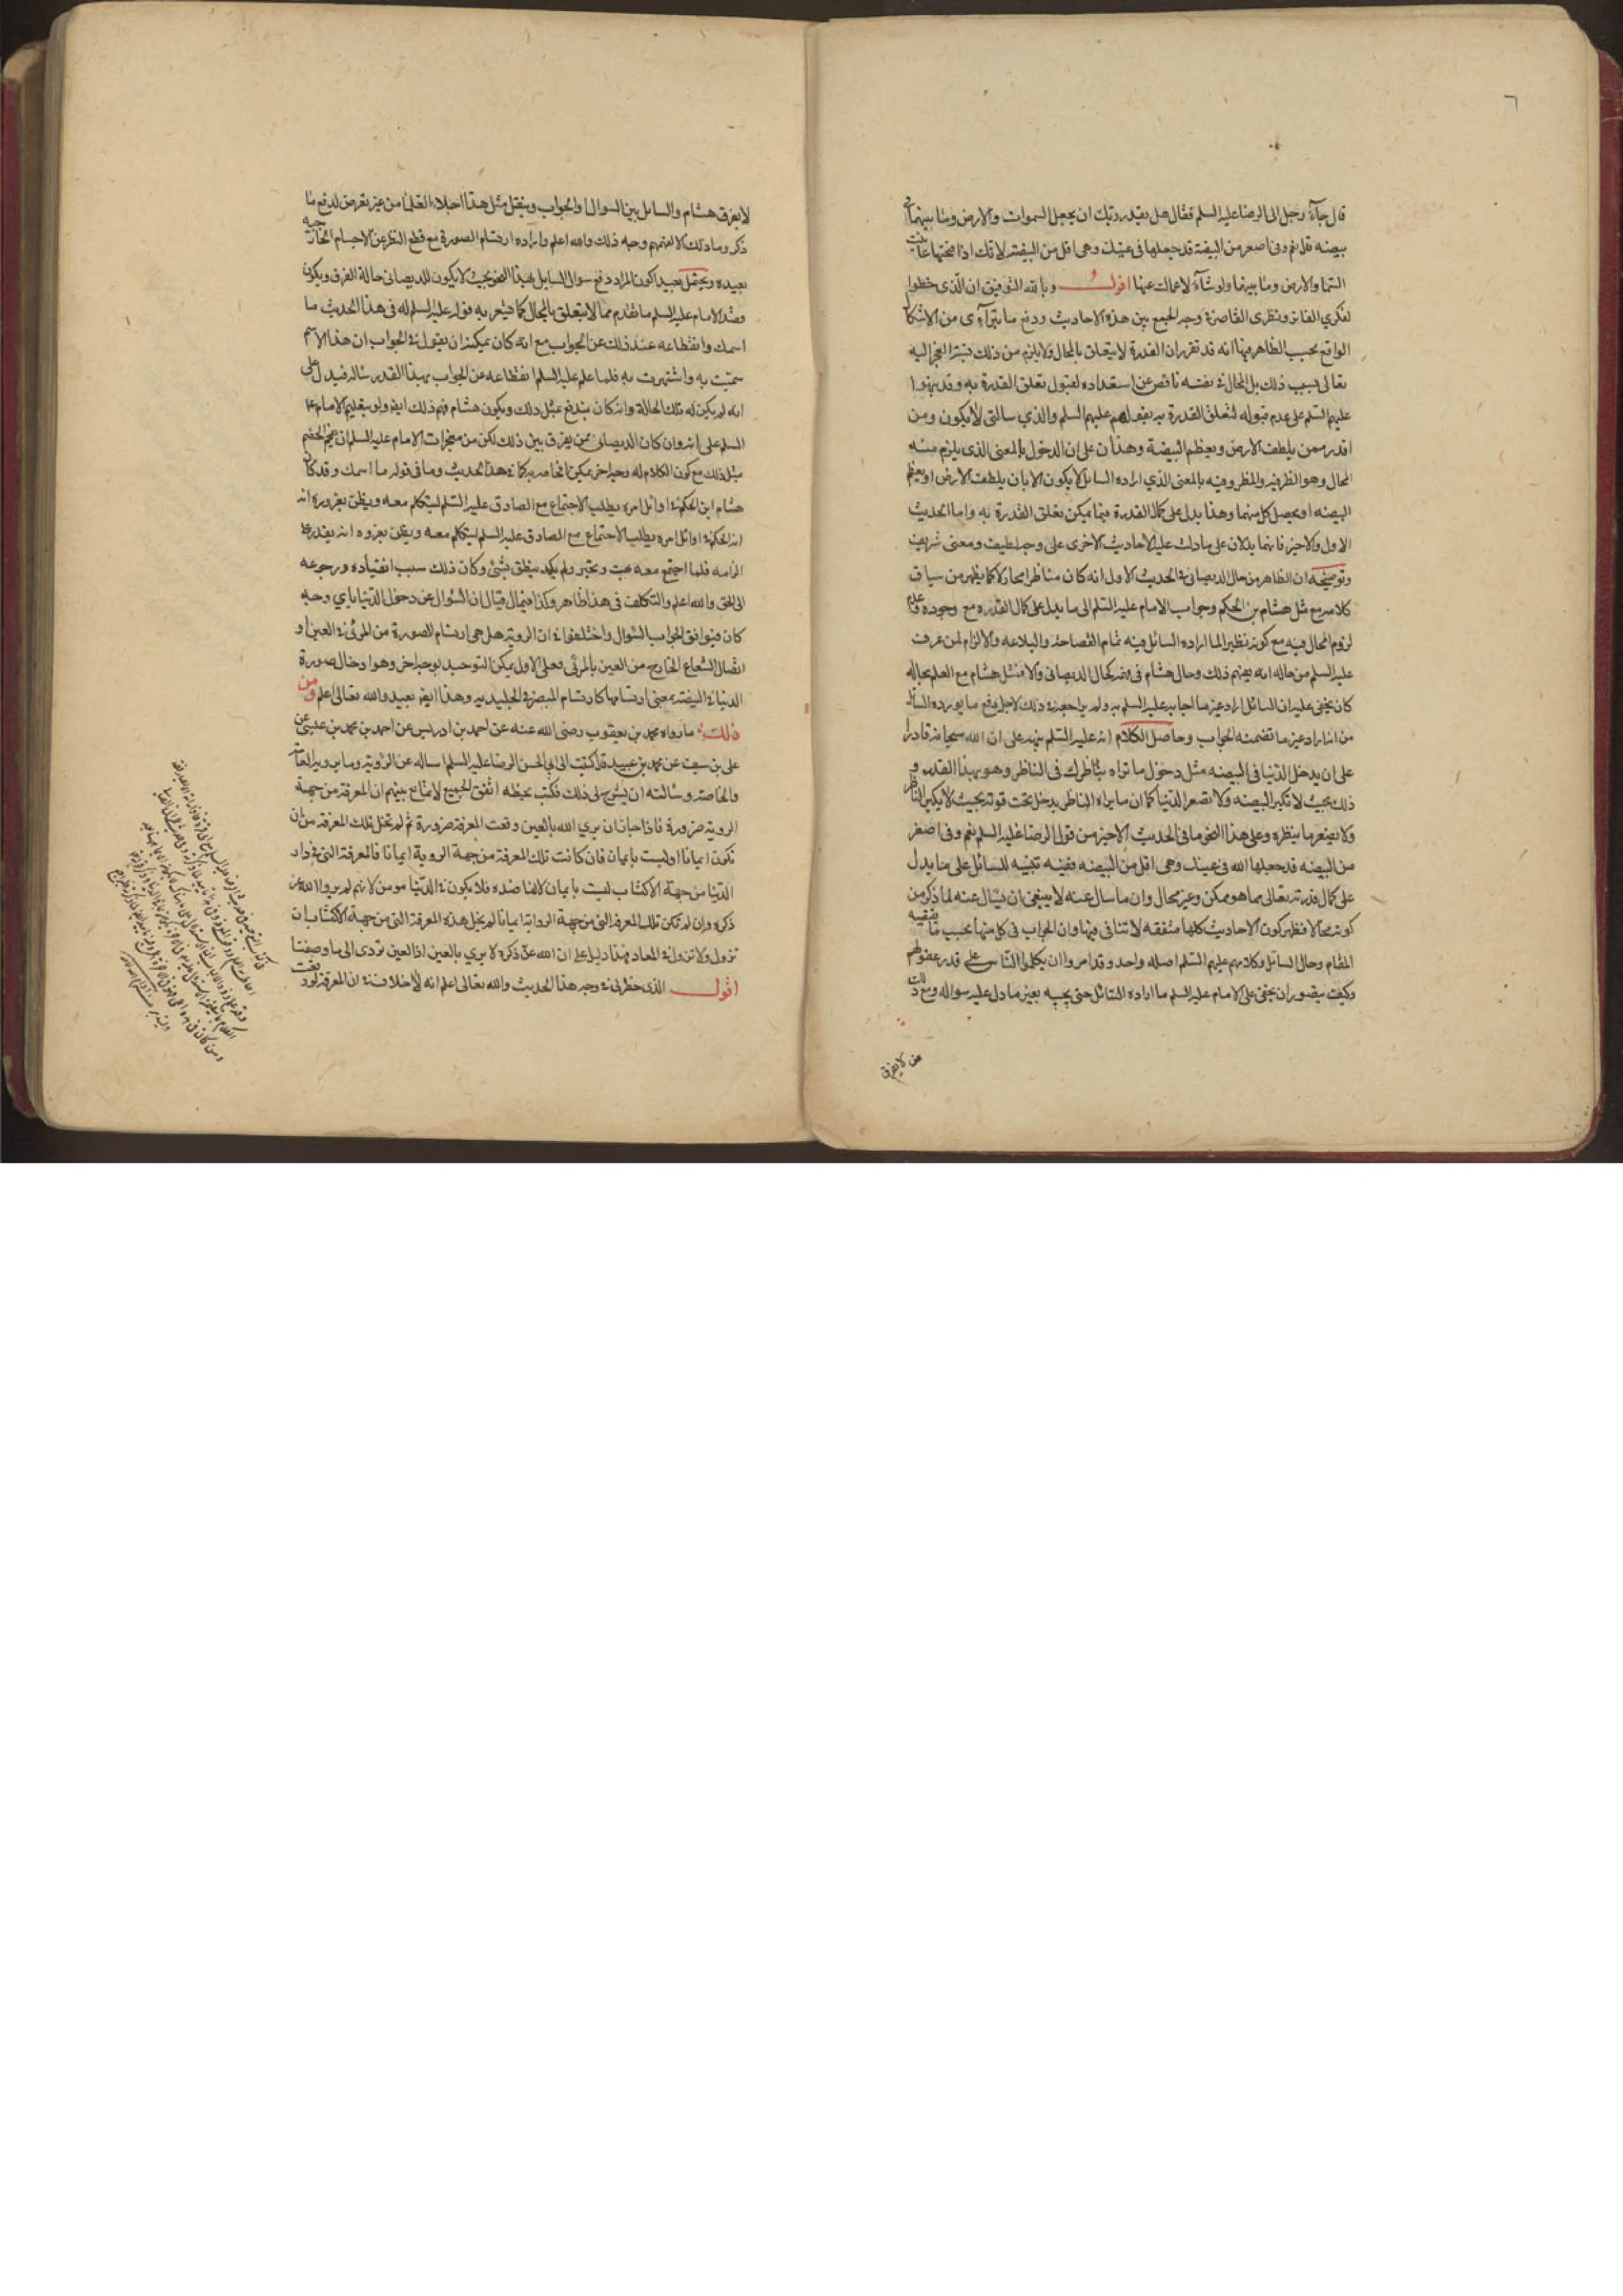 ٦
قال جآء رجل الى الرضا عليه السلم فقال هل يقدر ربك ان يجعل السموات والارض وما بينهما في
بيضه قال نعم وفى اصغر من البيضة قد جعلها فى عينك وهى اقل من البيضة لانك اذا فتحتها عاينت
السما والارض وما بينهما ولو شآء لاعماك عنها اقول وبالله التوفيق ان الذى خطر لي
لفكري الفاتر ونظرى القاصر في وجه الجمع بين هذه الاحاديث ودفع ما يترآءى من الاشكال
الواقع بحسب الظاهر فيها انه قد تقرر ان القدرة لا يتعلق بالمحال ولا يلزم من ذلك نسبة العجز اليه
تعالى بسبب ذلك بل المحال في نفسه ناقص عن استعداده لقبول تعلق القدرة به وقد نبهوا
عليهم السلم على عدم قبوله لتعلق القدرة به بقولهم عليهم السلم والذي سالتنى لا يكون ومن
اقدر ممن يلطف الارض ويعظم البيضة وهذان على ان الدخول بالمعنى الذى يلزم منه
المحال وهو الظرفيه والمظروفيه بالمعنى الذي اراده السائل لا يكون الا بان يلطف الارض او يعظم
البيضه او يحصل كل منهما وهذا يدل على كمال القدرة فيما يمكن تعلق القدرة به واما الحديث
الاول والاخير فانهما يدلان على ما دلت عليه الاحاديث الاخرى على وجه لطيف ومعنى شريف
وتوضيحه ان الظاهر من حال الديصانى في الحديث الاول انه كان مناظرا مجادلا كما يظهر من سياق
كلامه مع مثل هشام بن الحكم وجواب الامام عليه السلم الى ما يدل على كمال القدره مع وجوده وعدم
لزوم المحال فيه مع كونه نظير الما اراده السائل فيه تمام الفصاحة والبلاغه والالزام لمن عرف
عليه السلم من حاله انه يفهم ذلك وحال هشام فى فهمه كحال الديصانى والا فمثل هشام مع العلم بحاله
كان يخفى عليه ان السائل اراد غير ما اجابه عليه السلم به ولم يراجعه في ذلك لاجل دفع ما يورده السائل
من انى اراد غير ما تضمنه الجواب وحاصل الكلام انه عليه السلم نبه على ان الله سبحانه قادرا
على ان يدخل الدنيا فى البيضه مثل دخول ما تراه بناظرك فى الناظر وهو بهذا القدر و
ذلك بحيث لا تكبر البيضه ولا تصغر الدنيا كما ان ما يراه الناظر يدخل تحت قوته بحيث لا يكبر الناظر
ولا يصغر ما ينظره وعلى هذا النحو ما فى الحديث الاخير من قول الرضا عليه السلم نعم وفى اصغر
من البيضه قد جعلها الله فى عينك وهى اقل من البيضه ففيه تنبيه للسائل على ما يدل
على كمال قدرته تعالى مما هو ممكن وغير محال وان ما سال عنه لا ينبغى ان يسال عنه لما ذكر من
كونه محالا فظهر كون الاحاديث كلها متفقه لا تنافى فيها وان الجواب فى كل منها بحسب ما يقتضيه
المقام وحال السائل وكلامهم عليهم السلم اصله واحد وقد امروا ان يكلموا الناس على قدر عقولهم
وكيف يتصور ان يخفى على الامام عليه السلم ما اراده السائل حتى يجيبه بغير ما دل عليه سواله ومع ذلك
لا يفرق
لا يفرق هشام والسائل بين السوال والجواب وينقل مثل هذا اجلاء العلما من غير تعرض لدفع ما
ذكر وما ذلك الا لفهمهم وجه ذلك والله اعلم وارادة ارتسام الصورة مع قطع النظر عن الاجسام الخارجيه
بعيده ويحتمل بعيدا كون المراد دفع سوال السايل بهذا النحو بحيث لا يكون للديصانى حالة الفرق ويكون
قصد الامام عليه السلم ما تقدم مما لا يتعلق بالمحال كما يشعر به قوله عليه السلم له فى هذا الحديث ما
اسمك وانقطاعه عند ذلك عن الجواب مع انه كان يمكنه ان يقول في الجواب ان هذا الاسم
سميت به واشتهرت به فلما علم عليه السلم انقطاعه عن الجواب بهذا القدر ساله فيدل على
انه لم يكن له تلك الحالة وانه كان يندفع بمثل ذلك ويكون هشام فهم ذلك ايضا ولو بتعليم الامام عليه
السلم على انه وان كان الديصانى ممن يفرق بين ذلك لكن من معجزات الامام عليه السلم ان يفحم الخصم
بمثل ذلك مع كون الكلام له وجه اخر يمكن الخاصه به كما في هذا الحديث وما فى قوله ما اسمك وقد كان
هشام ابن الحكم في اوائل امره يطلب الاجتماع مع الصادق عليه السلم ليتكلم معه ويظن بغروره انه
ابن الحكم في اوائل امره يطلب الاجتماع مع الصادق عليه السلم ليتكلم معه ويظن بغروره انه يقدر على
الزامه فلما اجتمع معه بهت وتحير ولم يكد ينطق بشئ وكان ذلك سبب انقياده ورجوعه
الى الحق والله اعلم والتكلف فى هذا ظاهر وكذا فيما لو يقال ان السوال عن دخول الدنيا باي وجه
كان فيوافق الجواب السوال واختلفوا في ان الروية هل هى ارتسام الصورة من المرئى في العين او
اتصال الشعاع الخارج من العين بالمرئى فعلى الاول يمكن التوحيد بوجه اخر وهو ادخال صورة
الدنيا في البيضة بمعنى ارتسامها كارتسام المبصر فى الجليديه وهذا ايضا بعيد والله تعالى اعلم ومن
ذلك ما رواه محمد بن يعقوب رضى الله عنه عن احمد بن ادريس عن احمد بن محمد بن عيسى عن
على بن سيف عن محمد بن عبيد قال كتبت الى ابى الحسن الرضا عليه السلم اساله عن الرؤية وما يرويه العامة
والخاصة وسالته ان يشرح لى ذلك فكتب بخطه اتفق الجميع لا تمانع بينهم ان المعرفة من جهة
الروية ضرورة فاذا جاز ان يرى الله بالعين وقعت المعرفة ضرورة ثم لم تخل تلك المعرفة من ان
تكون ايمانا او ليست بايمان فان كانت تلك المعرفة من جهة الروية ايمانا فالمعرفة التى في دار
الدنيا من جهة الاكتساب ليست بايمان لانها ضده فلا يكون في الدنيا مومن لانهم لم يروا الله عز
ذكره وان لم تكن تلك المعرفة التى من جهة الرواية ايمانا لم يخل هذه المعرفة التى من جهة الاكتساب ان
تزول ولا تزول في المعاد فهذا دليل على ان الله عز ذكره لا يرى بالعين اذ العين تودى الى ما وصفنا
اقول الذى خطر لى في وجه هذا الحديث والله تعالى اعلم انه لا خلاف في ان المعرفة لو وقعت